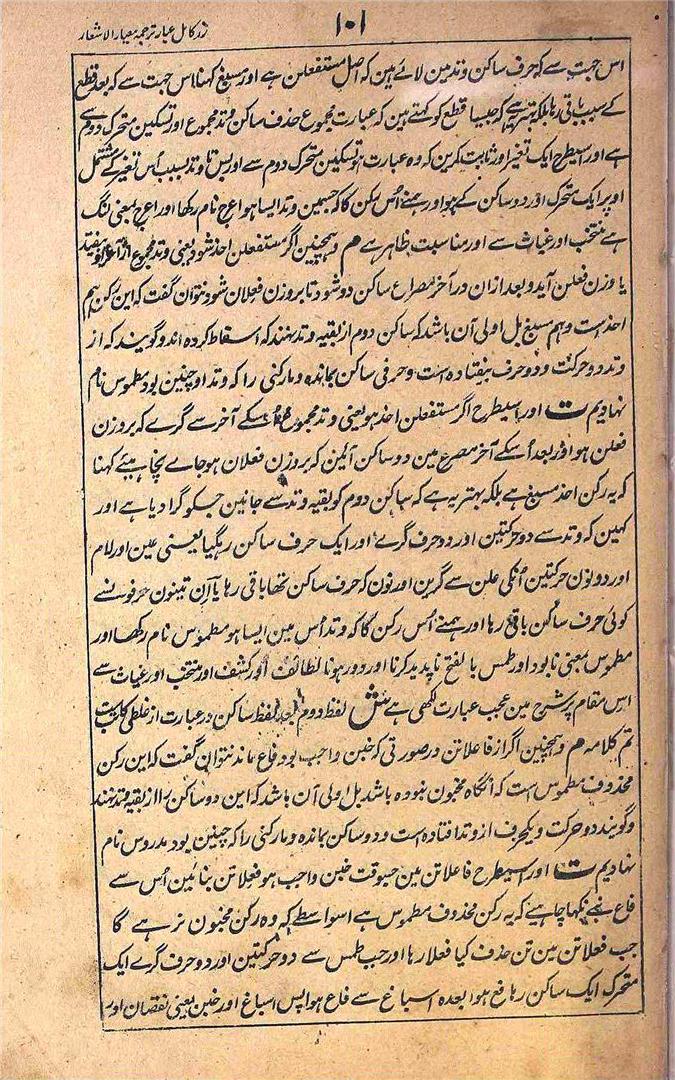 زر کامل عیار ترجمہ معیار الاشعار
۱۰۱
اس جہت سے کہ حرف ساکن وتد مین لائے ہین کہ اصل مستفعلن ہے اور مسبغ کہنا اس جہت سے کہ بعد قطع
کے سبب باقی رہا بلکہ بہتر ہے کہ جیسا قطع کو کہتے ہین کہ عبارت مجموع حذف ساکن وتد مجموع اور تسکین متحرک دوم سے
ہے اور اسیطرح ایک تغیر اور ثابت کرین کہ وہ عبارت ہو تسکین متحرک دوم سے اور بس تا وتد بسبب اُس تغیر کے مشتمل
اوپر ایک متحرک اور دو ساکن کے ہو اور ہمنے اُس رکن کا کہ جسمین وتد ایسا ہو اعرج نام رکھا اور اعرج بمعنی لنگ
ہے منتخب اور غیاث سے اور مناسبت ظاہر ہے م و ہمچنین اگر مستفعلن احذ شود یعنی وتد مجموع از آخر او بیفتد
یا وزن فعلن آید و بعد ازان در آخر مصراع ساکن دو شود تا بروزن فعلان شود نتوان گفت کہ این رکن ہم
احذ است و ہم مسبغ بل اولی آن باشد کہ ساکن دوم از بقیہ وتد نہند کہ اسقاط کردہ اند و گویند کہ از
وتد دو حرکت و دو حرف بیفتادہ است و حرفی ساکن بماندہ و ما رکنی را کہ وتد او چنین بود مطموس نام
نہادیم ت اور اسیطرح اگر مستفعلن احذ ہو یعنی وتد مجموع اُسکے آخر سے گرے کہ بروزن
فعلن ہو اور بعد اُسکے آخر مصرع مین دو ساکن آئین کہ بروزن فعلان ہو جاے نچاہیئے کہنا
کہ یہ رکن احذ مسبغ ہے بلکہ بہتر یہ ہے کہ ساکن دوم کو بقیہ وتد سے جانین جسکو گرا دیا ہے اور
کہین کہ وتد سے دو حرکتین اور دو حرف گرے اور ایک حرف ساکن رہگیا یعنی عین اور لام
اور دونون حرکتین اُنکی علن سے گرین اور نون کہ حرف ساکن تھا باقی رہا یا اِن تینون حرفونسے
کوئی حرف ساکن باقی رہا اور ہمنے اُس رکن کا کہ وتد اُس مین ایسا ہو مطموس نام رکھا اور
مطموس بمعنی نابود اور طمس بالفتح ناپدید کرنا اور دور ہونا لطائف اور کشف اور منتخب اور غیاث سے
اِس مقام پر شرح مین عجب عبارت لکھی ہے ش لفظ دوم بعد لفظ ساکن در عبارت از غلطی کاتب است
تم کلامہ م و ہمچنین اگر از فاعلاتن در صورتی کہ خبن واجب بود فاع ماند نتوان گفت کہ این رکن
محذوف مطموس است کہ آنگاہ مخبون نبودہ باشد بل اولی آن باشد کہ این دو ساکن را از بقیہ وتد نہند
و گویند دو حرکت و یکحرف از وتد افتادہ است و دو ساکن بماندہ و ما رکنی را کہ چنین بود مدروس نام
نہادیم ت اور اسیطرح فاعلاتن مین جسوقت خبن واجب ہو فعلاتن بنائین اُس سے
فاع بنے نکہا چاہیئے کہ یہ رکن محذوف مطموس ہے اسواسطے کہ وہ رکن مخبون نرہے گا
جب فعلاتن مین تن حذف کیا فعلا رہا اور جب طمس سے دو حرکتین اور دو حرف گرے ایک
متحرک ایک ساکن رہا فع ہوا بعدہ اسباغ سے فاع ہوا پس اسباغ اور خبن یعنی نقصان اور